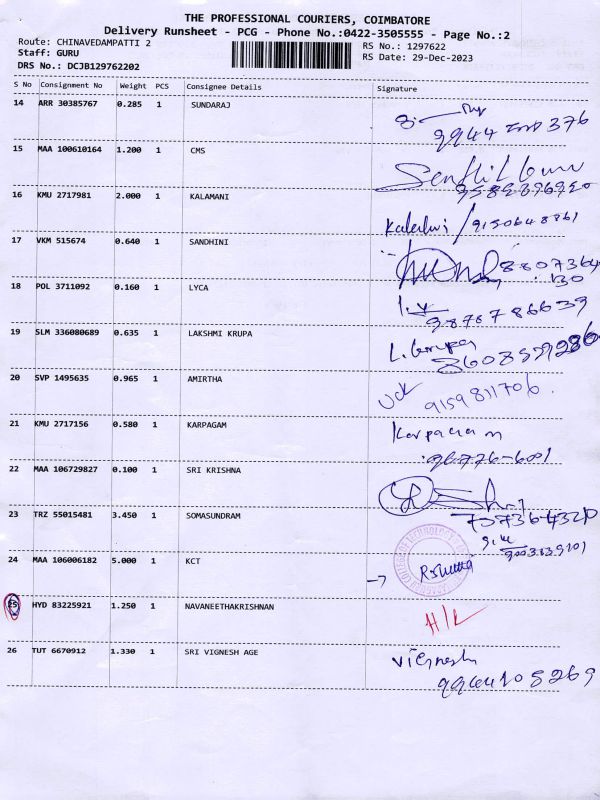 THE PROFESSIONAL COURIERS, COIMBATORE
Delivery Runsheet - PCG - Phone No.:0422-3505555 - Page No.:2
Route: CHINAVEDAMPATTI 2
Staff: GURU
DRS No.: DCJB129762202
RS No.: 1297622
RS Date: 29-Dec-2023
S No Consignment No Weight PCS Consignee Details Signature
14 ARR 30385767 0.285 1 SUNDARAJ
15 MAA 100610164 1.200 1 CMS
16 KMU 2717981 2.000 1 KALAMANI
17 VKM 515674 0.640 1 SANDHINI
8807364
130
18 POL 3711092 0.160 1 LYCA
I.V
9876786639
19 SLM 336080689 0.635 1 LAKSHMI KRUPA
L. Grupa
20 SVP 1495635 0.965 1 AMIRTHA
9159811706
21 KMU 2717156 0.580 1 KARPAGAM
22 MAA 106729827 0.100 1 SRI KRISHNA
23 TRZ 55015481 3.450 1 SOMASUNDRAM
24 MAA 106006182 5.000 1 KCT
25 HYD 83225921 1.250 1 NAVANEETHAKRISHNAN
H/L
26 TUT 6670912 1.330 1 SRI VIGNESH AGE
Vignesh